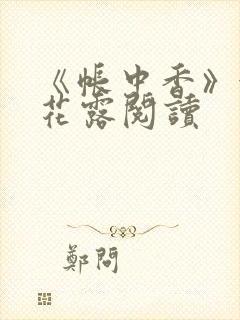 《帳中香》
花露閱讀
鄭問